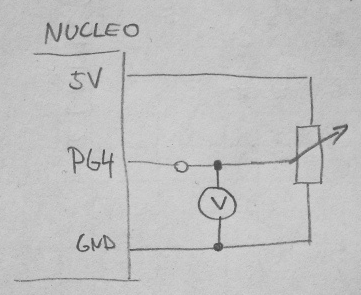 NUCLEO
5V
PG4
V
GND